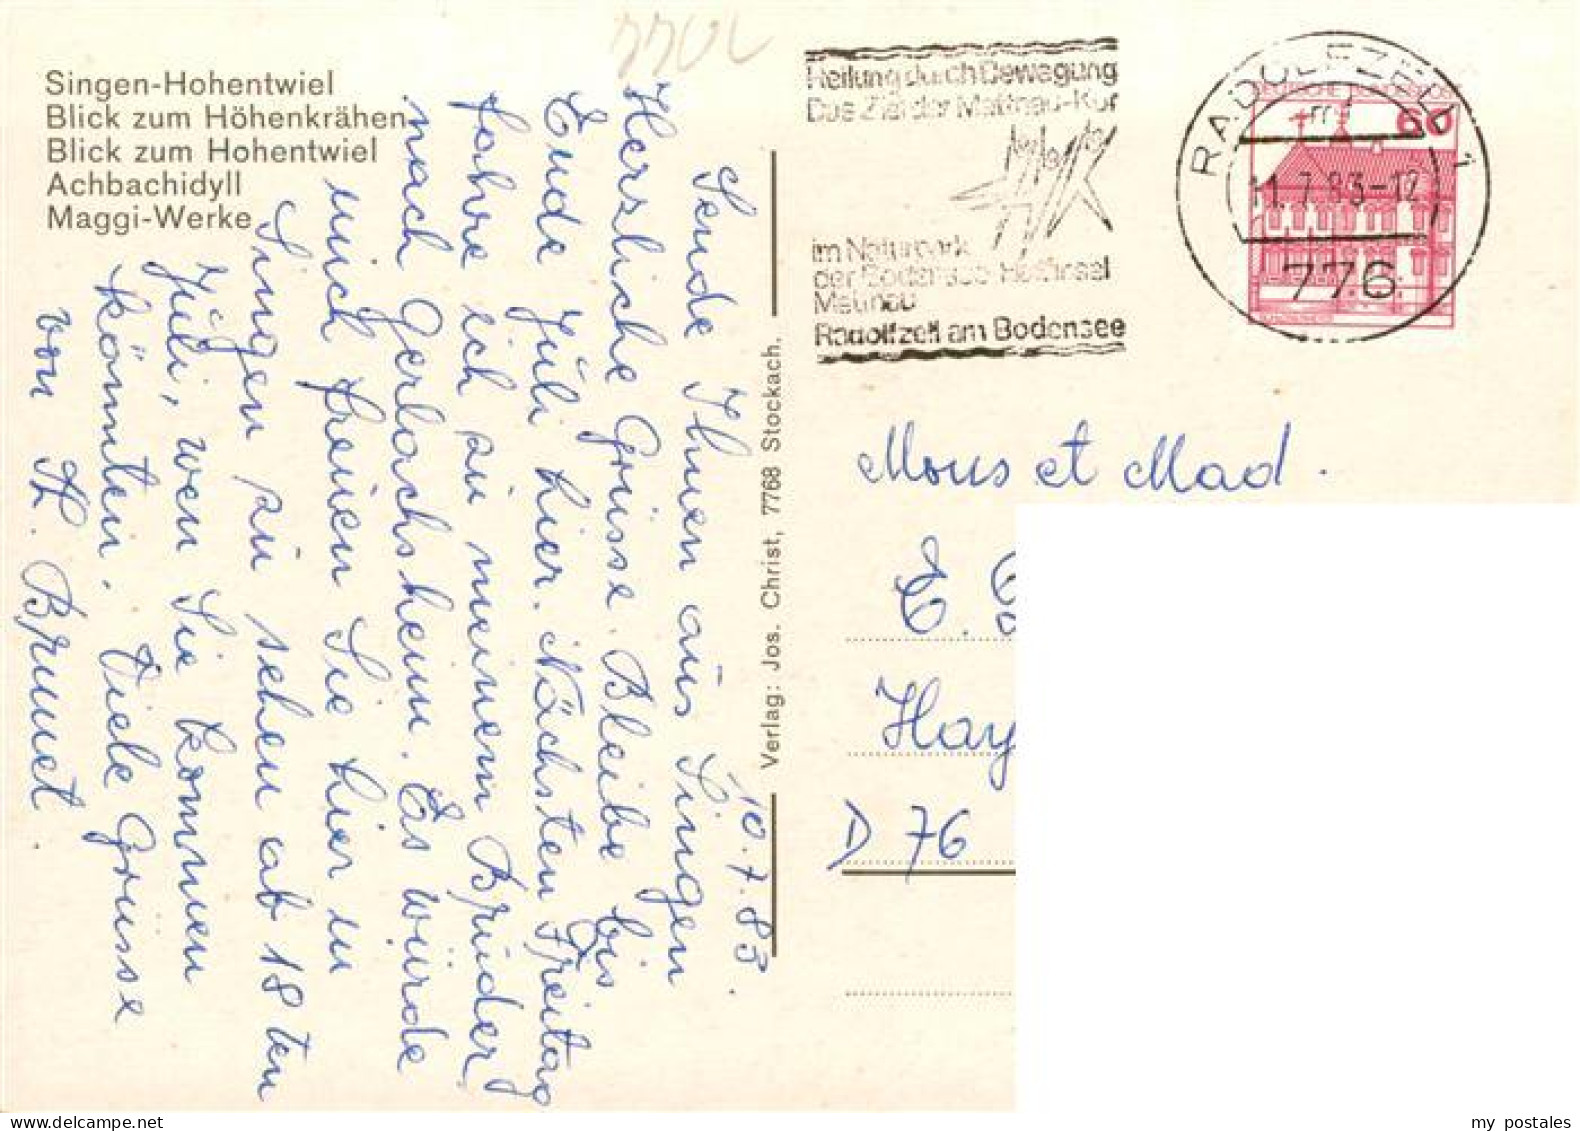 Singen-Hohentwiel
Blick zum Höhenkrähen
Blick zum Hohentwiel
Achbachidyll
Maggi-Werke
7702
10.7.83.
Sende Ihnen aus Singen
Herzliche Grüsse. Bleibe bis
Ende Júli hier. Nächsten Freitag
fahre ich zu meinem Brúder
nach Gerlachsheim. Es würde
mich freuen Sie hier in
Singen zu sehen ab 18 ten
Júli, wen Sie kommen
könnten. Viele Grüsse
von Brunet.
Verlag: Jos. Christ, 7768 Stockach.
Heilung durch Bewegung
Das Ziel der Mettnau-Kur
im Naturpark
der Bodensee-Halbinsel
Mettnau
Radolfzell am Bodensee
RADOLFZELL 1
11.7.83-12
776
DEUTSCHE BUNDESPOST
60
Mons et Mad.
E.
Hay
D 76
my postales